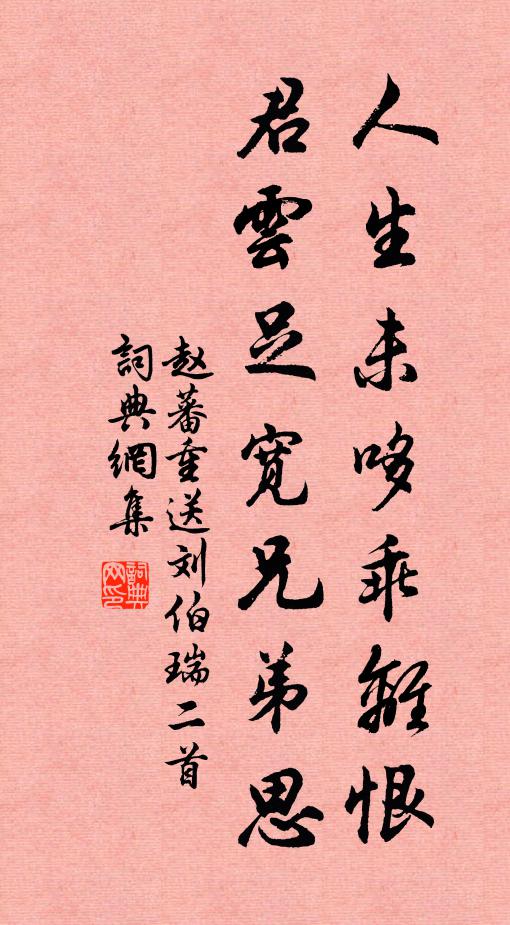 人生未哆乖離恨
君雲足宽兄弟思
赵蕃重送刘伯瑞二首
詞典網集
詞典网印